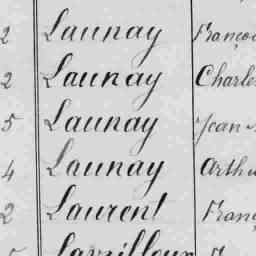 2 Launay Franço
2 Launay Charles
5 Launay Jean
4 Launay Arthu
2 Laurent Franç